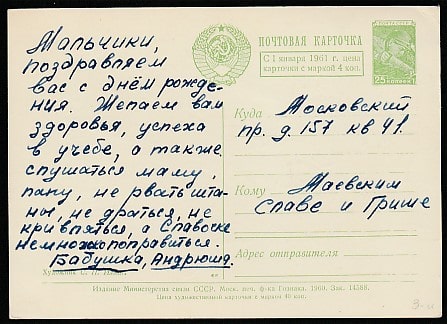 Мальчики,
поздравляем
вас с днём рожде-
ния. Желаем вам
здоровья, успеха
в учебе, а также
слушаться маму,
папу, не рвать шта-
ны, не драться, не
кривляться, а Славоске
немножко поправиться.
Бабушка, Андрюша.
ПОЧТОВАЯ КАРТОЧКА
С 1 января 1961 г. цена
карточки с маркой 4 коп.
25 КОПЕЕК
Куда Московский
пр. д. 157 кв 41.
Кому Маевским
Славе и Грише
Адрес отправителя
Художник С.
Издание Министерства связи СССР. Моск. печ. ф-ка Гознака. 1960. Зак. 14588.
Цена художественной карточки с маркой 40 коп.